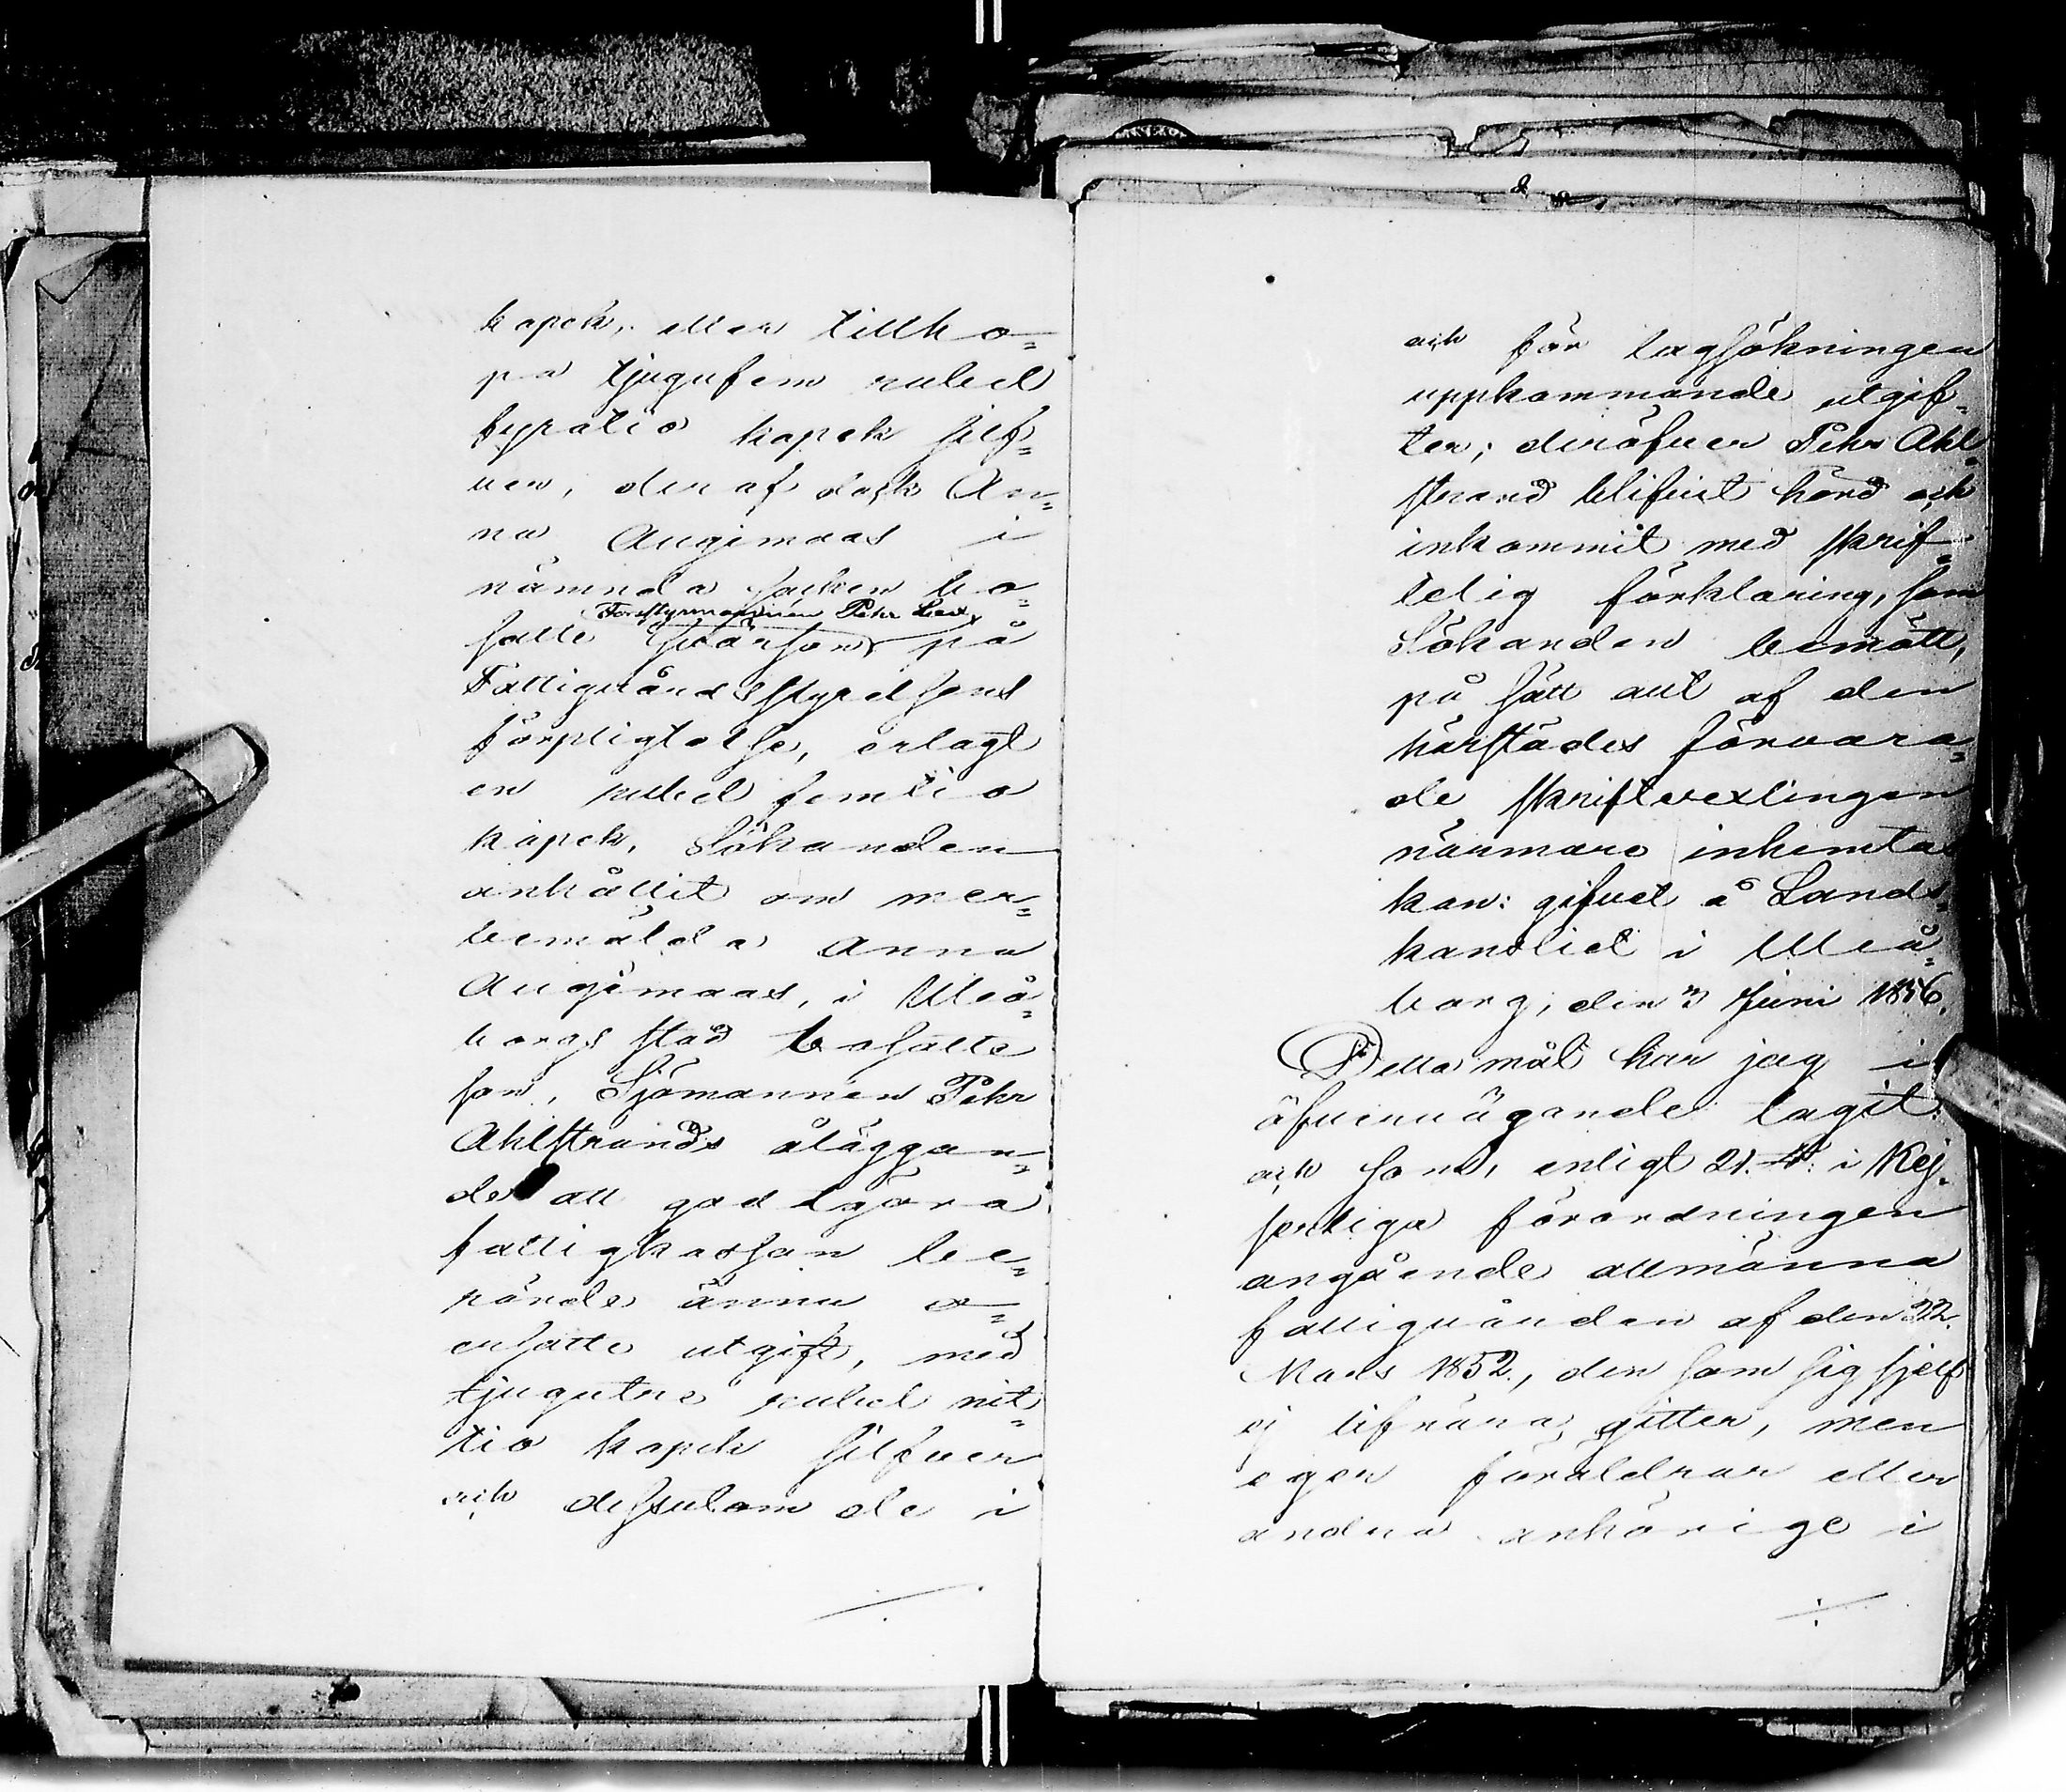 kopek, eller tillho-
pa tjugufem rubel
fyratio kopek silf-
ver, deraf dock An-
na Augimaas i
nämnda socken bo-
Forstyrmannen Pehr
satte svärson, på
Fattigvårdsstyrelsens
förpligtelse, erlagt
en rubel femtio
kopek, Sökanden
anhållit om mer-
bemälda Anna
Augimaas, i Uleå-
borgs stad bosatte
son, Sjömannen Pehr
Ahlstrands åläggan-
de att godtgöra
fattigkassan be-
rörde ännu o-
ersatte utgift, med
tjugutre rubel nit-
tio kopek silfver
och dessutom de i
och för lagsökningen
uppkommande utgif-
ter; deröfver Pehr Ahl-
strand blifvit hörd och
inkommit med skrif-
telig förklaring, som
Sökanden bemött,
på sätt allt af den
härstädes förvara-
de skriftvexlingen
närmare inhemtas
kan: gifvet å Lands-
kansliet i Uleå-
borg, den 3 Juni 1856.
Detta mål har jag i
öfvervägande tagit:
och som, enligt 21. §. i Kej-
serliga förordningen
angående allmänna
fattigvården af den 22.
Mars 1852., den som sig sjelf
ej lifnära gitter, men
eger föräldrar eller
andra anhörige i